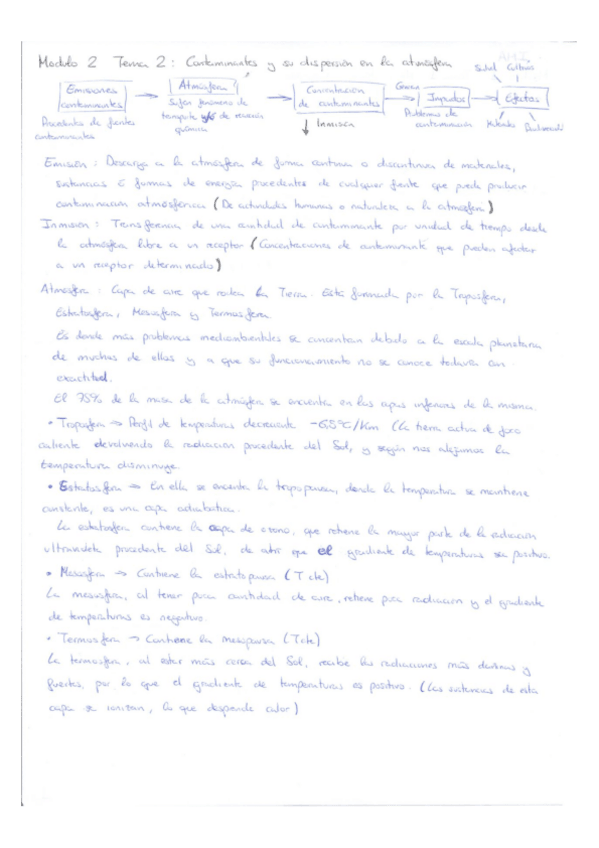 Modulo 2 Tema 2: Contaminantes y su dispersión en la atmósfera
Salud Cultivos
Emisiones contaminantes
Atmósfera
Concentración de contaminantes
Genera
Impactos
Efectos
Procedentes de fuentes contaminantes
Sufren fenómenos de transporte y/o de reacción química
↓ Inmisión
Problemas de contaminación
Materiales
Emisión: Descarga a la atmósfera de forma continua o discontinua de materiales,
sustancias o formas de energía procedentes de cualquier fuente que pueda producir
contaminación atmosférica (De actividades humanas o naturales a la atmósfera)
Inmisión: Transferencia de una cantidad de contaminante por unidad de tiempo desde
la atmósfera libre a un receptor (Concentraciones de contaminante que pueden afectar
a un receptor determinado)
Atmósfera: Capa de aire que rodea la Tierra. Está formada por la Troposfera,
Estratosfera, Mesosfera y Termosfera.
Es donde más problemas medioambientales se concentran debido a la escala planetaria
de muchas de ellas y a que su funcionamiento no se conoce todavía con
exactitud.
El 75% de la masa de la atmósfera se encuentra en las capas inferiores de la misma.
• Troposfera → Perfil de temperaturas decreciente -6,5ºC/Km (La tierra actúa de foco
caliente devolviendo la radiación procedente del Sol, y según nos alejamos la
temperatura disminuye.
• Estratosfera → En ella se encuentra la tropopausa, donde la temperatura se mantiene
constante, es una capa adiabática.
La estratosfera contiene la capa de ozono, que retiene la mayor parte de la radiación
ultravioleta procedente del Sol, de ahí que el gradiente de temperaturas sea positivo.
• Mesosfera → Contiene la estratopausa (T cte)
La mesosfera, al tener poca cantidad de aire, retiene poca radiación y el gradiente
de temperaturas es negativo.
• Termosfera → Contiene la mesopausa (T cte)
La termosfera, al estar más cerca del Sol, recibe las radiaciones más dañinas y
fuertes, por lo que el gradiente de temperaturas es positivo. (Las sustancias de esta
capa se ionizan, lo que desprende calor)